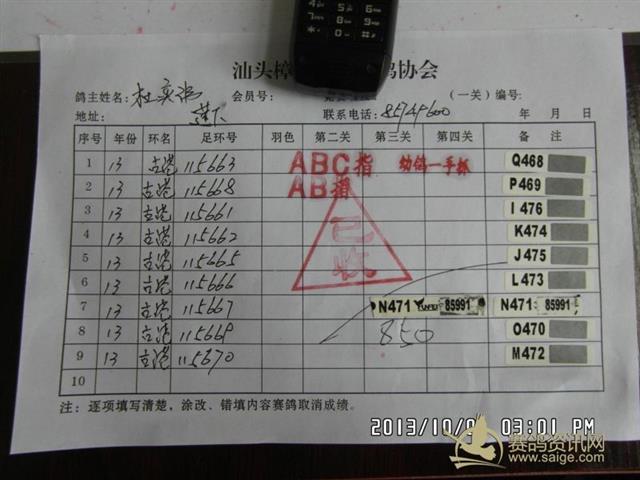 汕头樟 鸽协会
鸽主姓名: 杜奕 会员号: (一关) 编号:
地址: 联系电话: 85949600 年 月 日
序号 年份 环名 足环号 羽色 第二关 第三关 第四关 备 注
1 13 古港 115663 ABC指 幼鸽一手抓 Q468
2 13 古港 115668 AB指 P469
3 13 古港 115661 I 476
4 13 古港 115662 已 K474
5 13 古港 115665 收 J475
6 13 古港 115666 L473
7 13 古港 115667 N471 85991 N471 85991
8 13 古港 115669 850 O470
9 13 古港 115670 M472
10
注: 逐项填写清楚, 涂改、错填内容赛鸽取消成绩。
2013/10/ 03:01 PM
赛鸽资讯网
www.saige.com